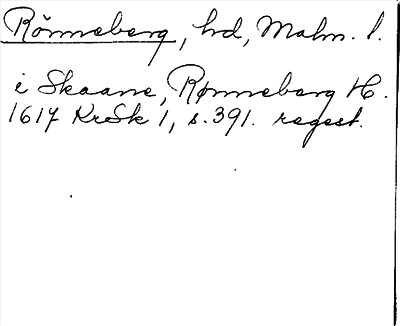 Rönneberg, hd, Malm. l.
i Skaane, Rønneberg H.
1617 KrSk 1, s. 391. regest.